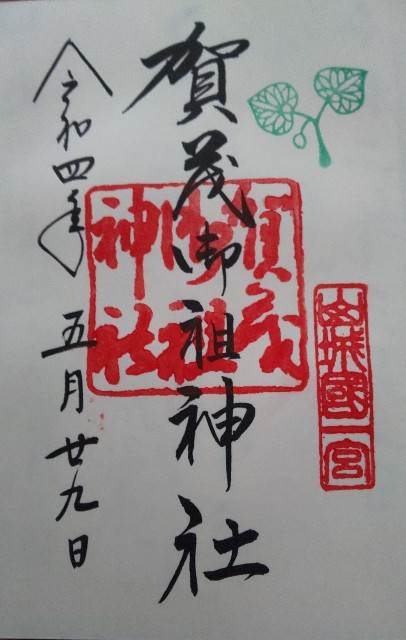 山城國一宮
賀茂御祖神社
賀茂
御祖
神社
令和四年五月廿九日